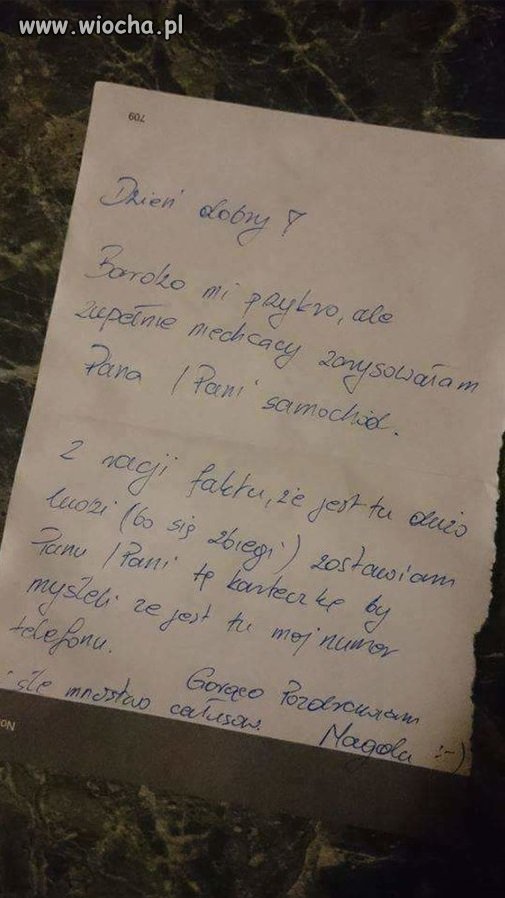 www.wiocha.pl
709
Dzień dobry!
Bardzo mi przykro, ale
zupełnie niechcący zarysowałam
Pana / Pani samochód.
Z racji faktu, że jest tu dużo
ludzi (bo się zbiegi) zostawiam
Panu / Pani tę karteczkę by
myśleli ze jest tu moj numer
telefonu.
Gorąco Pozdrawiam
i śle mnóstwo całusów.
Magda :-)
No